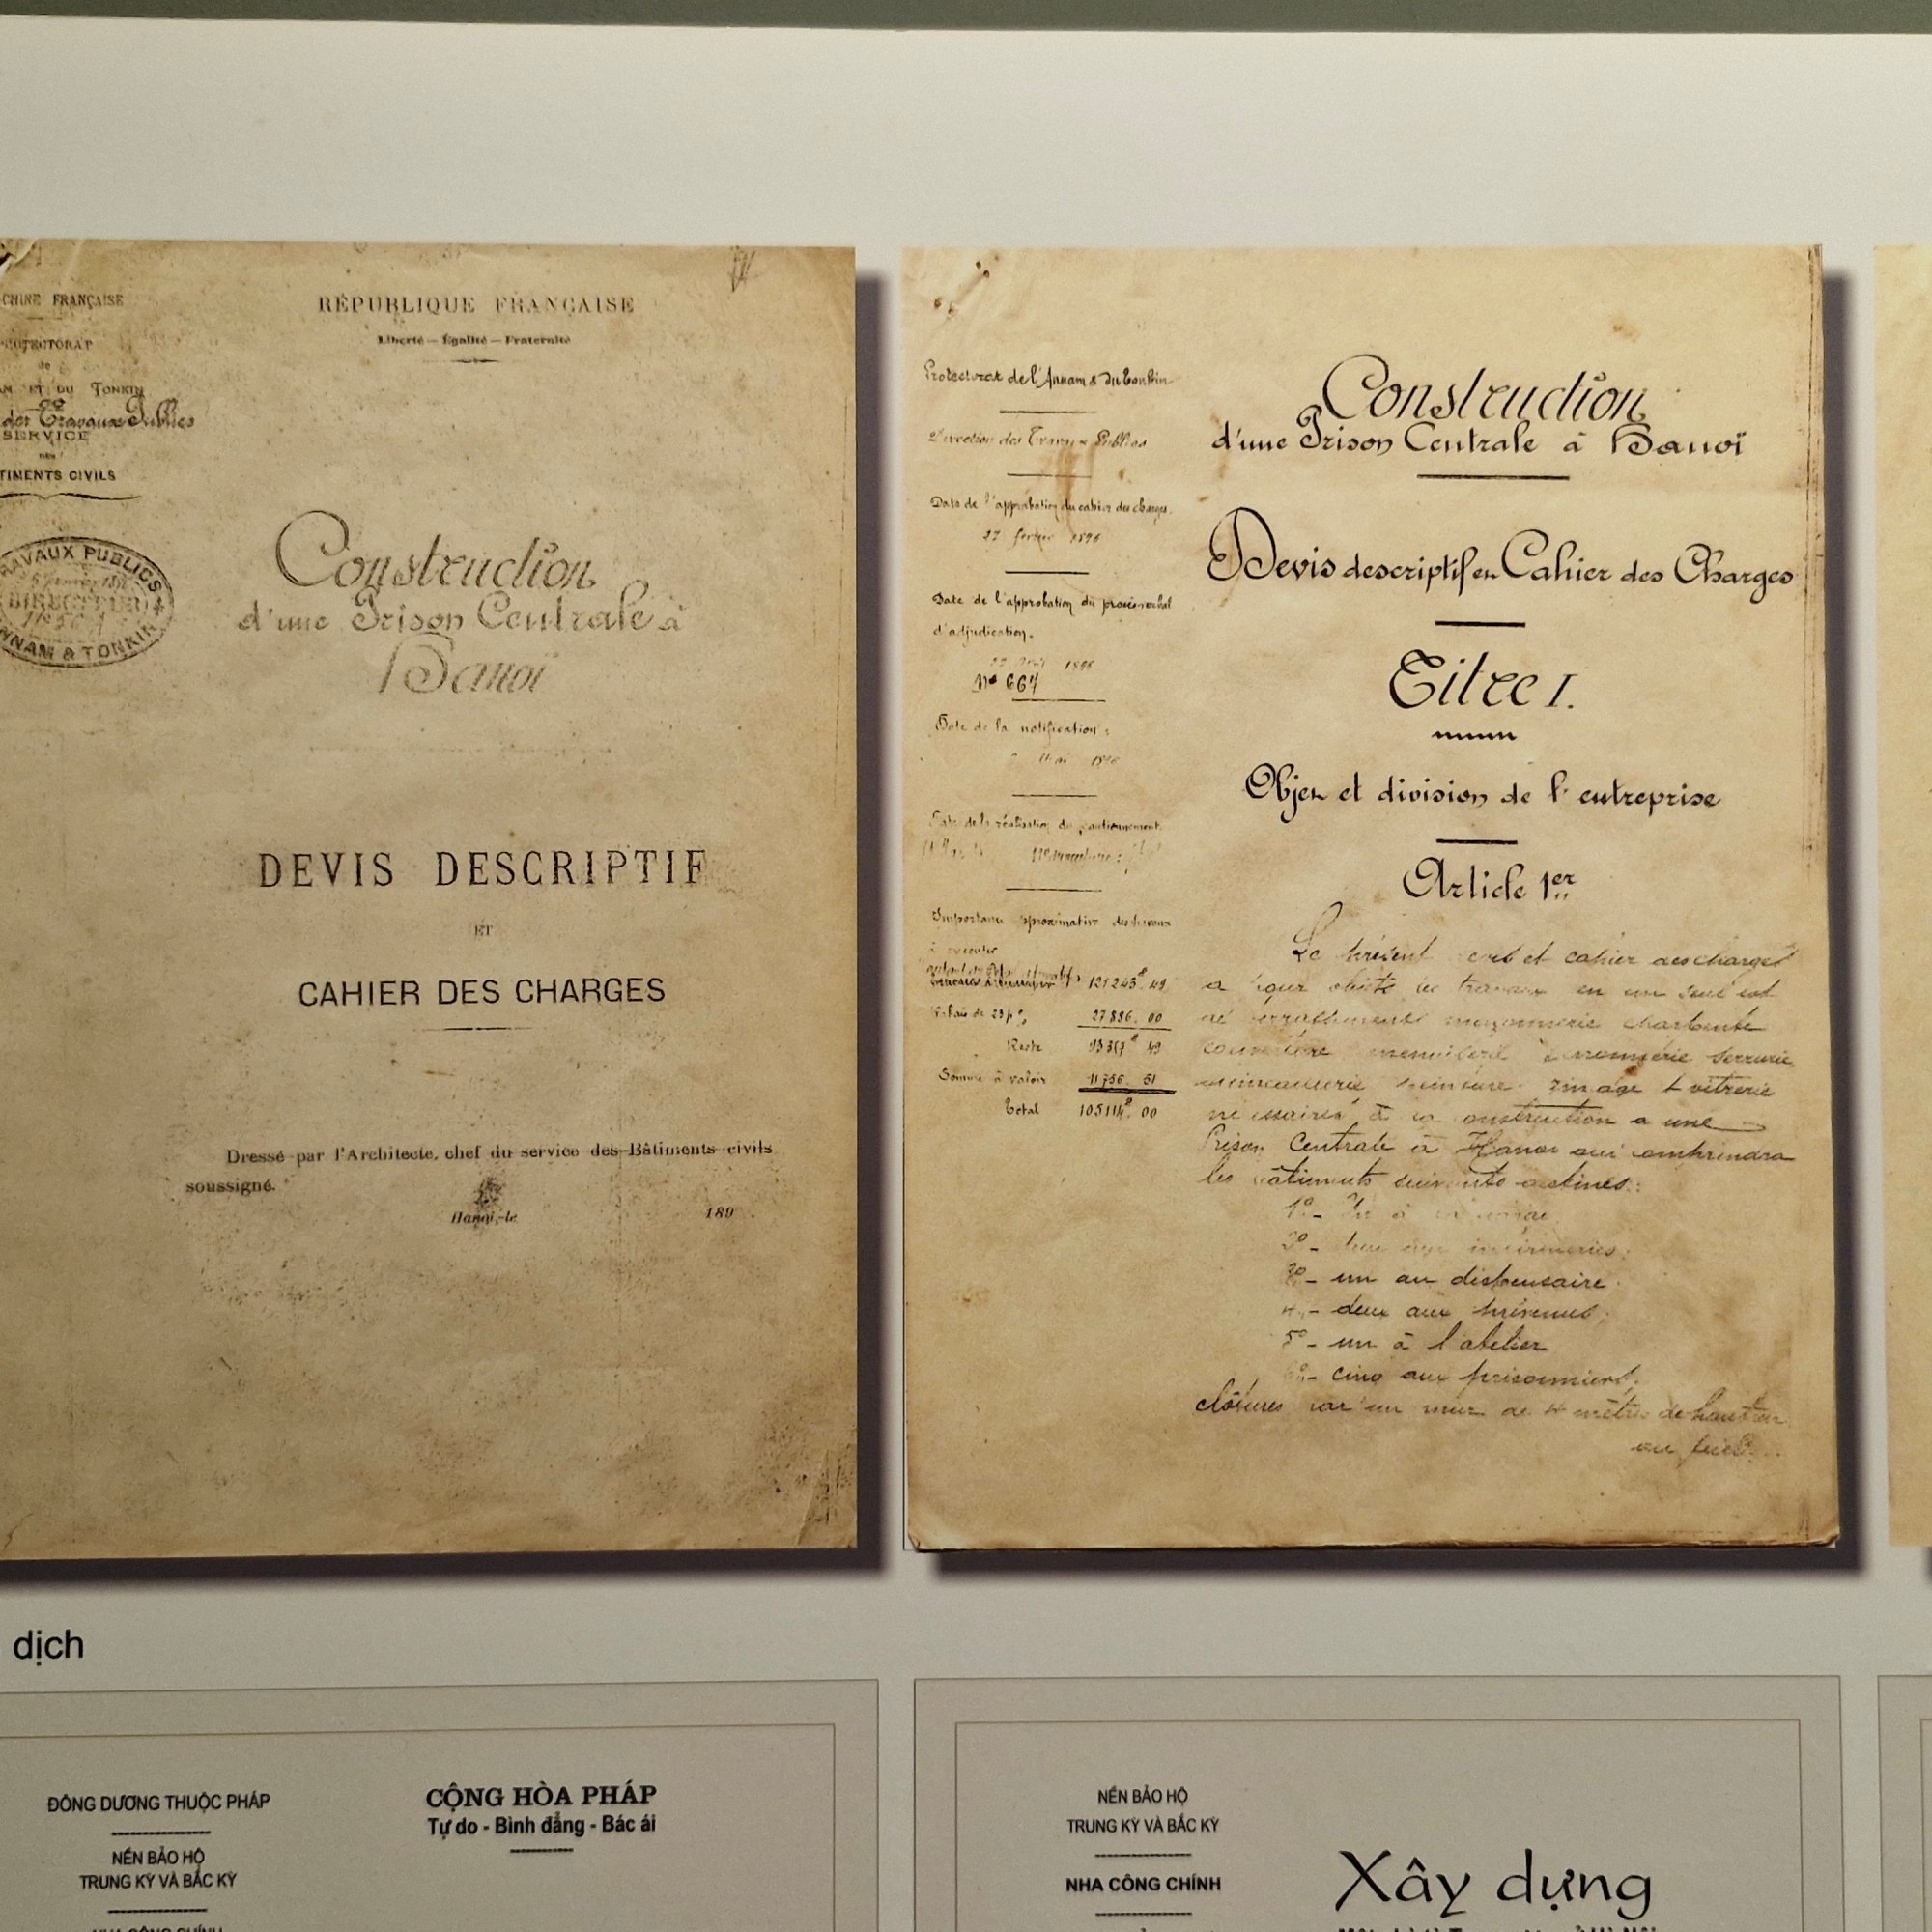 CHINE FRANÇAISE
PROTECTORAT
de
ET DU TONKIN
des Travaux Publics
SERVICE
DES
TIMENTS CIVILS
RÉPUBLIQUE FRANÇAISE
Liberté – Égalité – Fraternité
TRAVAUX PUBLICS
DIRECTEUR
ANNAM & TONKIN
Construction
d'une Prison Centrale à
Hanoï
DEVIS DESCRIPTIF
ET
CAHIER DES CHARGES
Dressé par l'Architecte, chef du service des Bâtiments civils
soussigné.
Hanoi, le 189 .
Protectorat de l'Annam & du Tonkin
Direction des Travaux Publics
Date de l'approbation du cahier des charges.
27 février 1896
Date de l'approbation du procès-verbal
d'adjudication.
1896
N° 667
Date de la notification :
Mai
Date de la réalisation du cautionnement
Importance approximative des travaux
à exécuter
121243. 49
Rabais de 23 p% 27886. 00
Reste 93357 49
Somme à valoir 11756. 51
Total 105114. 00
Construction
d'une Prison Centrale à Hanoï
Devis descriptif et Cahier des Charges
Titre I.
Objet et division de l'entreprise
Article 1er
Le présent et cahier des charges
a pour objets les travaux en un seul lot
de terrassements maçonnerie charpente
couverture menuiserie serrurerie
peinture zingage & vitrerie
nécessaires à la construction d'une
Prison Centrale à Hanoi qui comprendra
les bâtiments suivants destinés :
1°-
2°- infirmeries ;
3°- un au dispensaire
4°- deux aux prévenus ;
5°- un à l'atelier
6°- cinq aux prisonniers ;
clôturés par un mur de 4 mètres de hauteur
dịch
ĐÔNG DƯƠNG THUỘC PHÁP
NỀN BẢO HỘ
TRUNG KỲ VÀ BẮC KỲ
NHA CÔNG CHÍNH
CỘNG HÒA PHÁP
Tự do - Bình đẳng - Bác ái
NỀN BẢO HỘ
TRUNG KỲ VÀ BẮC KỲ
NHA CÔNG CHÍNH
Xây dựng